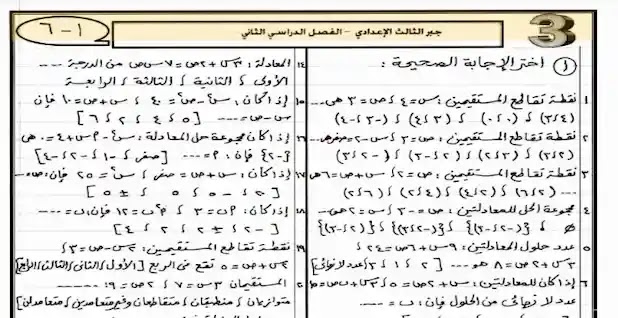 جبر الثالث الإعدادي - الفصل الدراسي الثاني
١ - ٦
3
١ اختر الإجابة الصحيحة :
١ نقطة تقاطع المستقيمين : س = ٤ ، ص = ٣ هى ...
(٣،٤) ، (٠،٠) ، (٤،٣) ، (-٣،-٤)
٢ نقطة تقاطع المستقيمين : ص = ٣ ، س - ٢ = صفر هى ...
٣ نقطة تقاطع المستقيمين : س = ٢ ، س + ص = ٦ هى
... (٦،٢) ، (٤،٢) ، (٢،٤) ، (٢،٦)
٤ مجموعة الحل للمعادلتين : ص =
٥ عدد حلول المعادلتين : ٩س + ٦ص = ٢٤ ،
٣س + ٢ص = ٨ هو ... [ ٢ ، ١ ، ٣ ، عدد لا نهائى ]
٦ إذا كان للمعادلتين : س + ٢ص = ٥ ،
عدد لا نهائى من الحلول فإن : ب = ...
١٤ المعادلة : ٣س + ٢ص = ٧ - س ص من الدرجة ...
الأولى ، الثانية ، الثالثة ، الرابعة
١٥ إذا كان : س٢ - ص٢ = ٤٠ ، س + ص = ١٠ فإن
س - ص = ... [ ٥ ، ٤ ، ٢ ، ٦ ]
١٦ إذا كان مجموعة حل المعادلة : س٢ - ٢س + ٤ = ٠ هى
{-٢} فإن : ٢ = ... [ صفر ، -١ ، -٢ ، -٤ ]
١٧ إذا كان : س + ص = صفر ، س٢ = ٢٥ فإن : ص = ...
[ ٢ ، -٥ ، ٥ ، ± ٥ ]
١٨ إذا كان :
[ -٢ ، ± ٢ ، ٢ ، ٤ ]
١٩ نقطة تقاطع المستقيمين : ٢س - ص = ٣ ،
٢س + ص = ٥ تقع فى الربع [ الأول ، الثانى ، الثالث ، الرابع ]
٢٠ المستقيمان ٣س = ٧ ، ٢ص = ٩ : ...
متوازيان ، منطبقان ، متقاطعان وغير متعامدين ، متعامدان ]